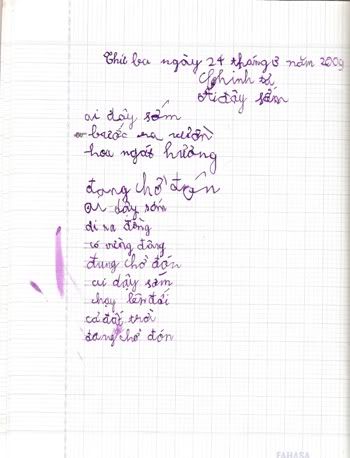 Thứ ba ngày 24 tháng 3 năm 2009
Chính tả
Ai dậy sớm
ai dậy sớm
bước ra vườn
hoa ngát hương
đang chờ đón
ai dậy sớm
đi ra đồng
có vừng đông
đang chờ đón
ai dậy sớm
chạy lên đồi
cả đất trời
đang chờ đón
FAHASA